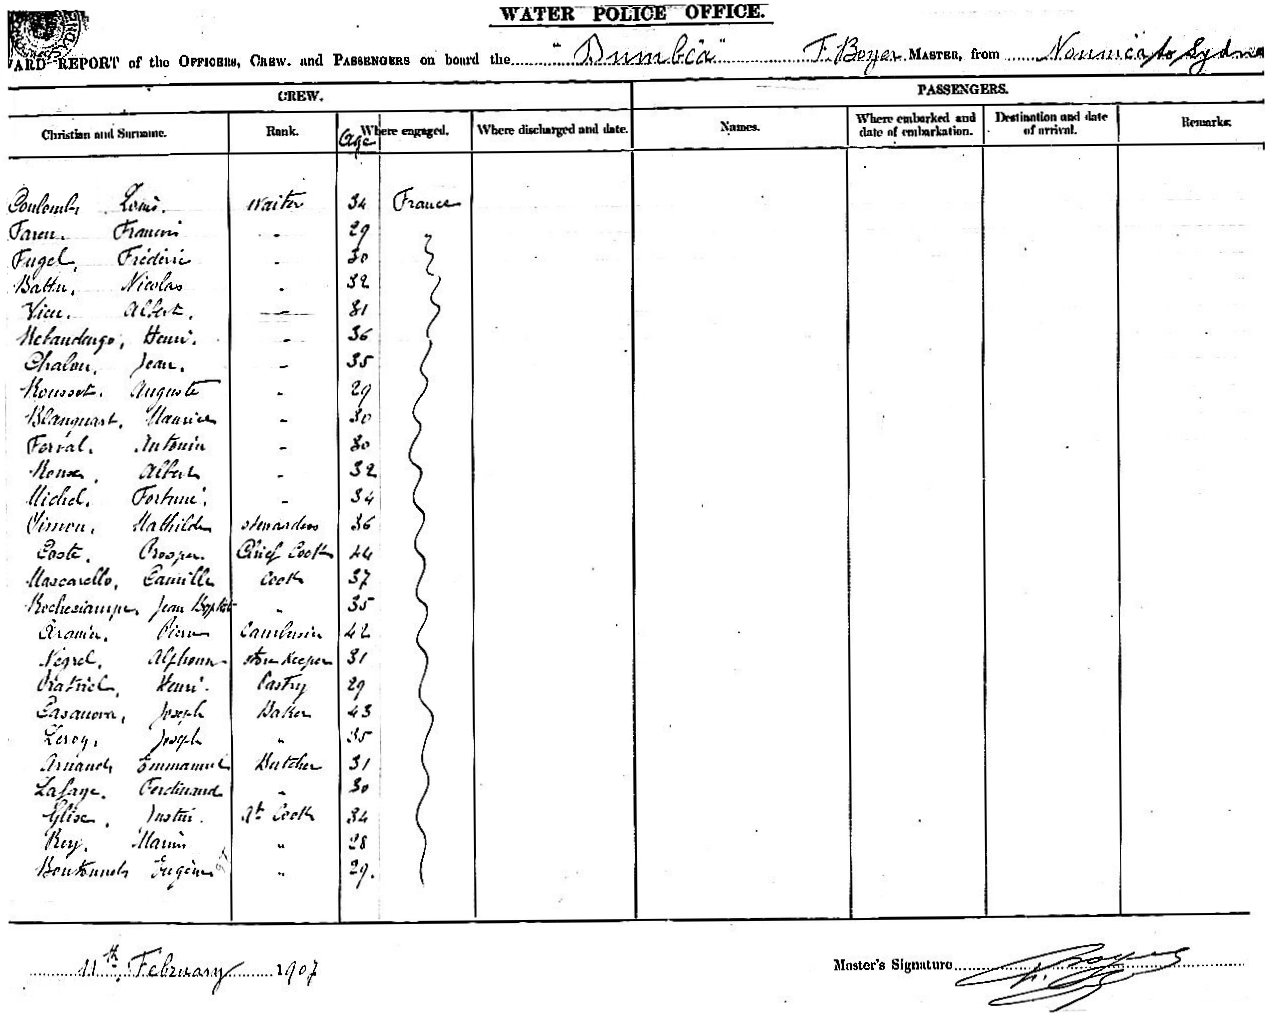 WATER POLICE OFFICE.
ARD REPORT of the OFFICERS, CREW, and PASSENGERS on board the "Dumbéa" F. Boyer MASTER, from Nouméa to Sydne
CREW. PASSENGERS.
Christian and Surname. Rank. Age Where engaged. Where discharged and date. Names. Where embarked and date of embarkation. Destination and date of arrival. Remarks.
Coulomb, Louis. Waiter 34 France
Faren. Francois " 29
Fugel, Frédéric " 30
Battu, Nicolas " 32
Vieu. Albert. " 31
Henri. " 36
Chalon, Jean. " 35
Rousset. Auguste " 29
Blanquart, Maurice " 30
Ferral. Antonin " 30
Roux, Albert " 32
Michel. Fortuné. " 34
Simon, Mathilde stewardess 36
Coste, Prosper. Chief Cook 44
Mascarello, Camille Cook 37
Jean Baptiste " 35
Pierre Cambusier 42
Négrel, Alphonse storekeeper 31
Henri. Pastry 29
Casanova, Joseph Baker 43
Leroy, Joseph " 35
Arnaud, Emmanuel Butcher 31
Lafaye. Ferdinand " 30
Glise, Justin. At Cook 34
Rey. Marius " 28
Eugène " 29.
11th February 1907 Master's Signature